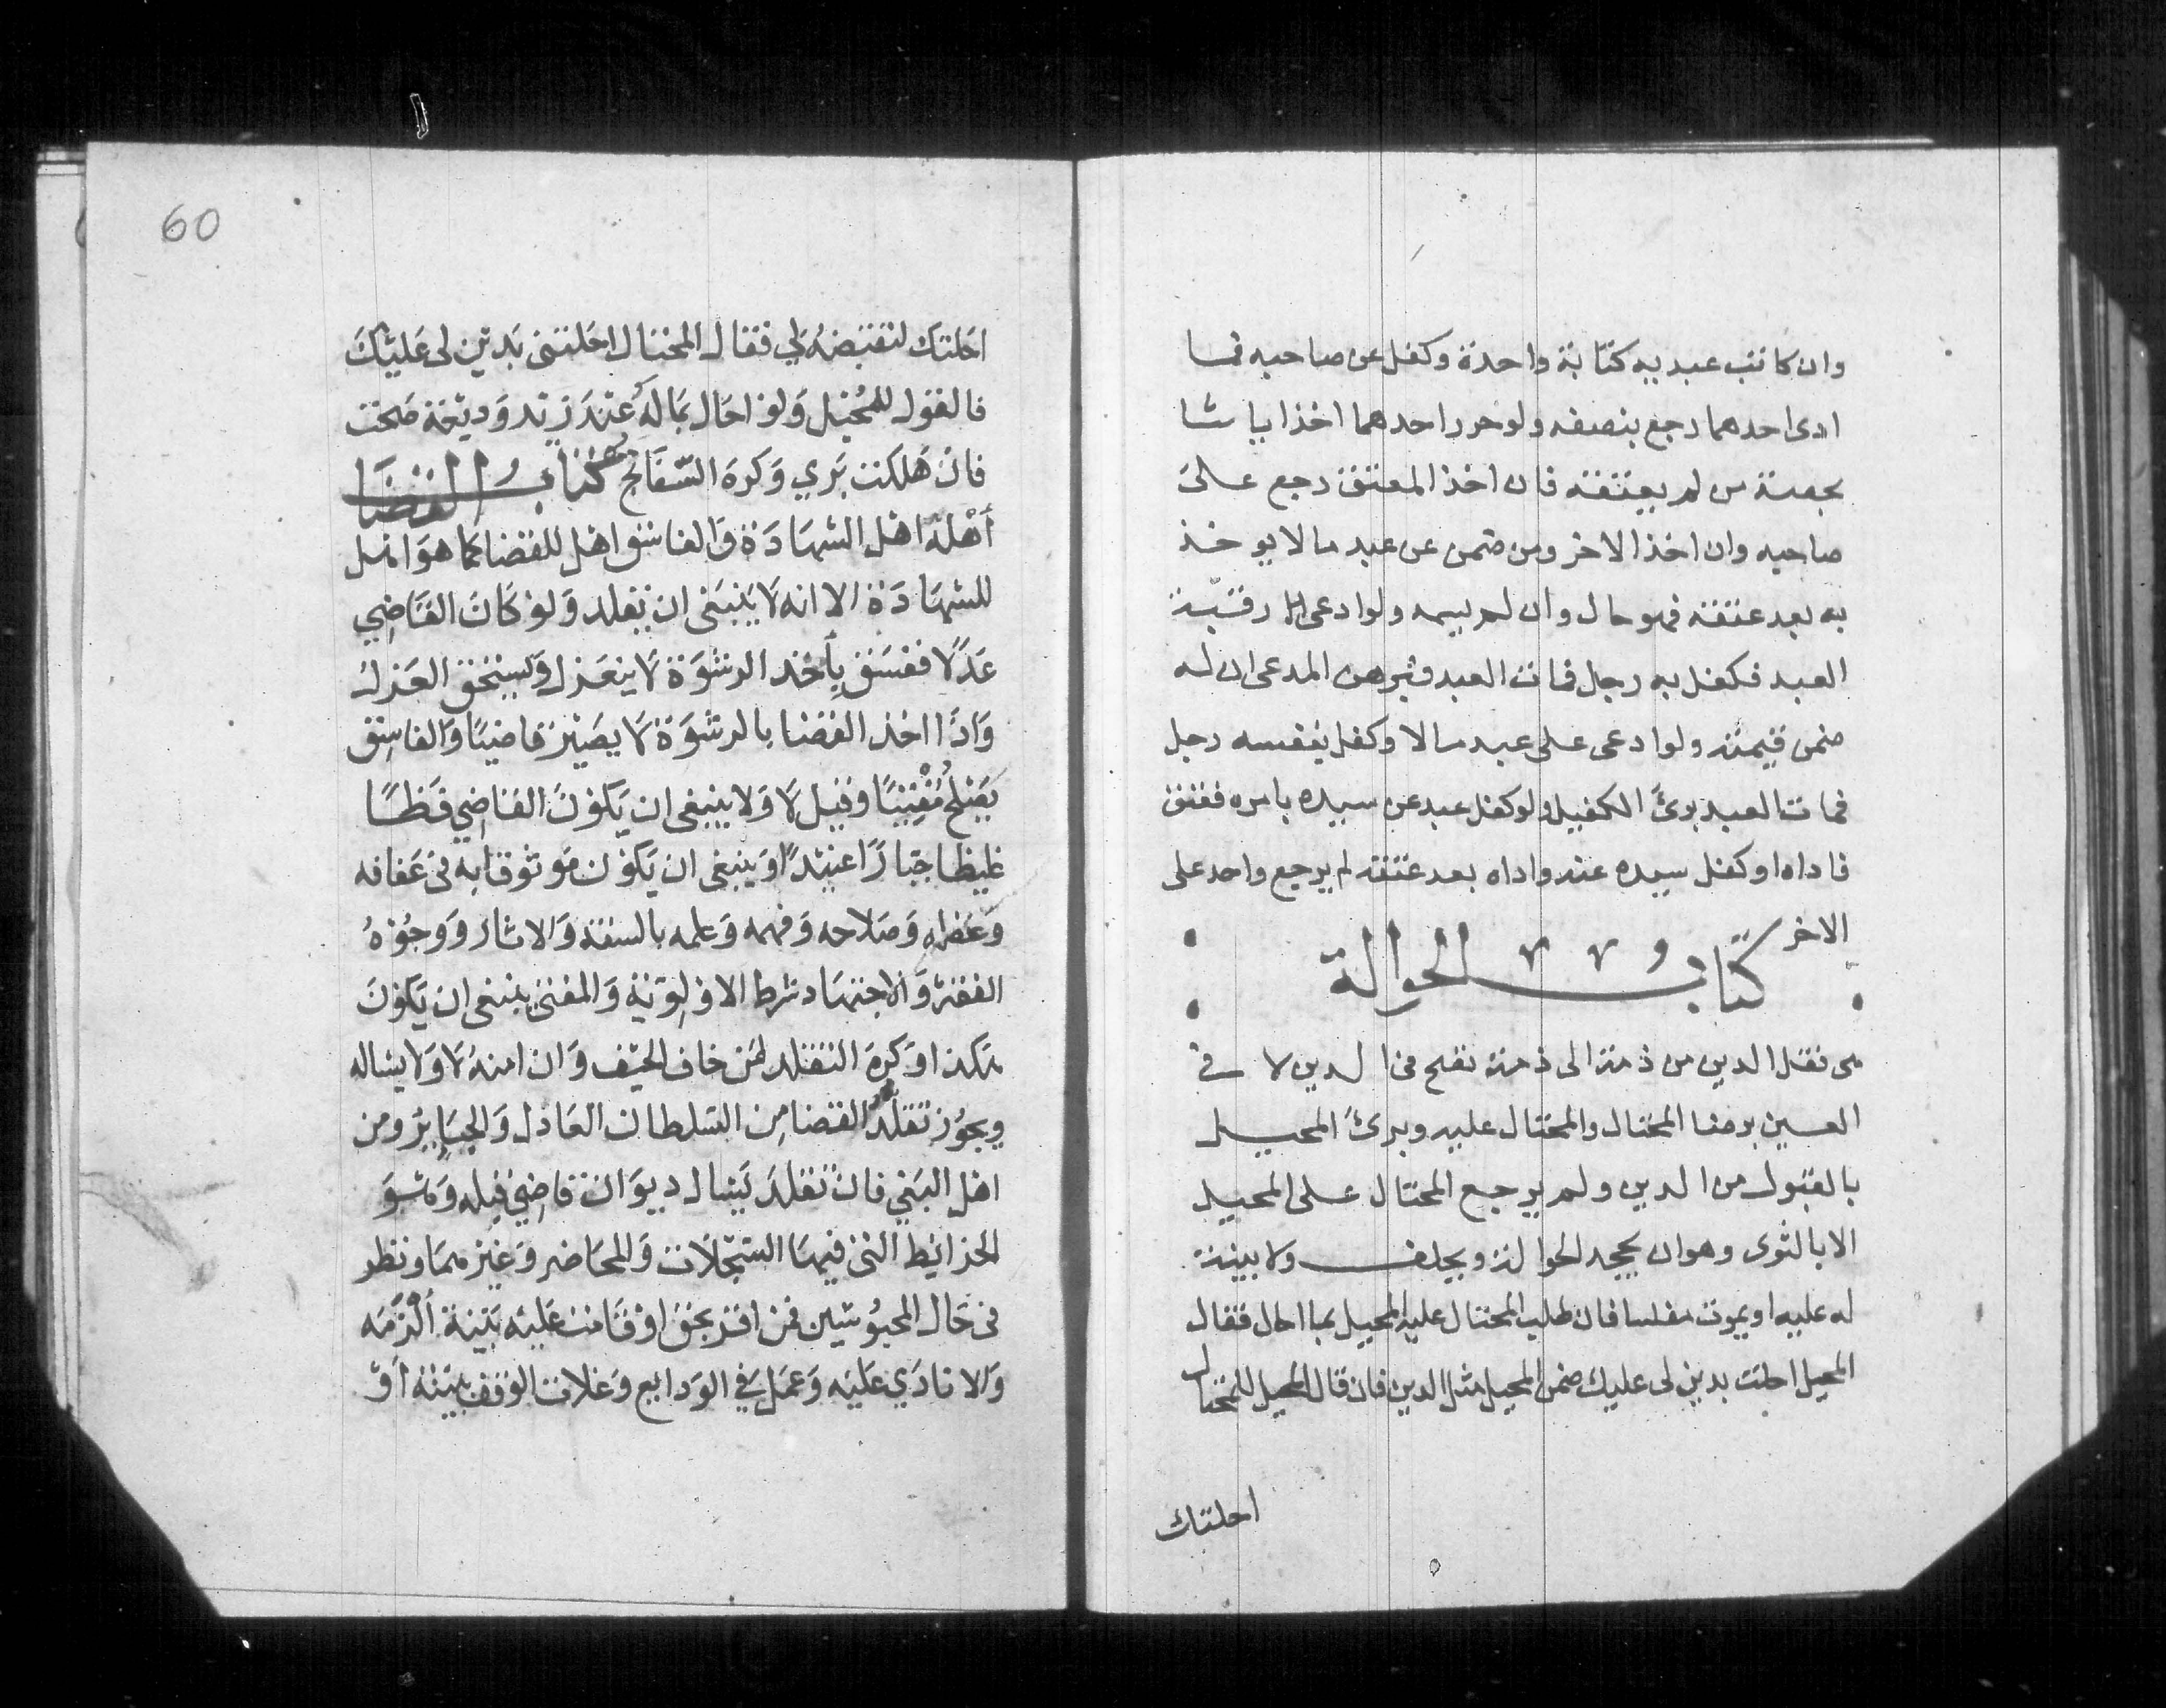 وان كاتب عبديه كتابة واحدة وكفل عن صاحبه فما
ادى احدهما رجع بنصفه ولو حرر احدهما اخذ ايا شا
بحصة من لم يعتقه فان اخذ المعتق رجع على
صاحبه وان اخذ الاخر ومن ضمن عن عبد مالا يوخذ
به بعد عتقه فهو حال وان لم يسمه ولو ادعى رقبة
العبد فكفل به رجل فمات العبد فبرهن المدعى ان له
ضمن قيمته ولو ادعى على عبد مالا وكفل بنفسه رجل
فمات العبد برئ الكفيل ولو كفل عبد عن سيده بامره فعتق
فاداه او كفل سيده عنه واداه بعد عتقه لم يرجع واحد على
الاخر كتاب الحوالة
هى نقل الدين من ذمة الى ذمة تصح فى الدين لا فى
العين برضا المحتال والمحتال عليه وبرئ المحيل
بالقبول من الدين ولم يرجع المحتال على المحيل
الا بالتوى وهو ان يجحد الحوالة ويحلف ولا بينة
له عليه او يموت مفلسا فان طلب المحتال عليه المحيل بما احال فقال
المحيل احلت بدين لى عليك ضمن المحيل مثل الدين فان قال المحيل للمحتال
احلتك
60
احلتك لتقبضه لي فقال المحتال احلتنى بدين لى عليك
فالقول للمحيل ولو احال بماله عند زيد وديعة صحت
فان هلكت بري وكره السفاتج كتاب القضا
أهله اهل الشهادة والفاسق اهل للقضا كما هو اهل
للشهادة الا انه لا ينبغى ان يقلد ولو كان القاضي
عدلا ففسق بأخذ الرشوة لا ينعزل ويستحق العزل
واذا اخذ القضا بالرشوة لا يصير قاضيا والفاسق
يصلح مفتيا وقيل لا ولا ينبغى ان يكون القاضي فظا
غليظا جبارا عنيدا وينبغى ان يكون موثوقا به فى عفافه
وعقله وصلاحه وفهمه وعلمه بالسنة والاثار ووجوه
الفقه والاجتهاد شرط الاولوية والمفتى ينبغى ان يكون
هكذا وكره التقلد لمن خاف الحيف وان امنه لا ولا يساله
ويجوز تقلد القضا من السلطان العادل والجاير ومن
اهل البغي فان تقلد يسال ديوان قاضي قبله وهو
الخرائط التى فيها السجلات والمحاضر وغيرهما ونظر
فى حال المحبوسين فمن اقر بحق او قامت عليه بينة ألزمه
والا نادي عليه وعمل في الودايع وغلات الوقف ببينة او